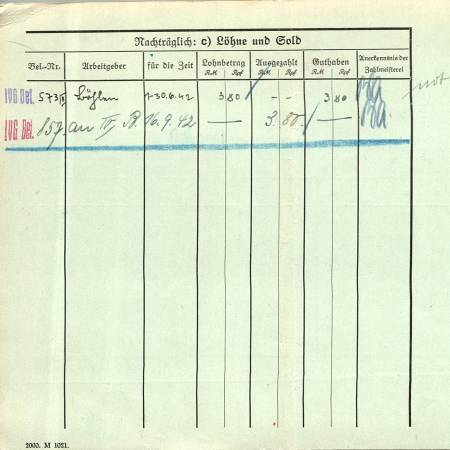 Nachträglich: c) Löhne und Sold
Bel.-Nr. Arbeitgeber für die Zeit Lohnbetrag Ausgezahlt Guthaben Anerkenntnis der Zahlmeisterei
RM Rpf RM Rpf RM Rpf
IVG Bel. 573 Böhlen 1-30.6.42 3 80 - - 3 80
IVG Bel. 857 an 16.9.42 — 3. 80. —
not
2000. M 1021.